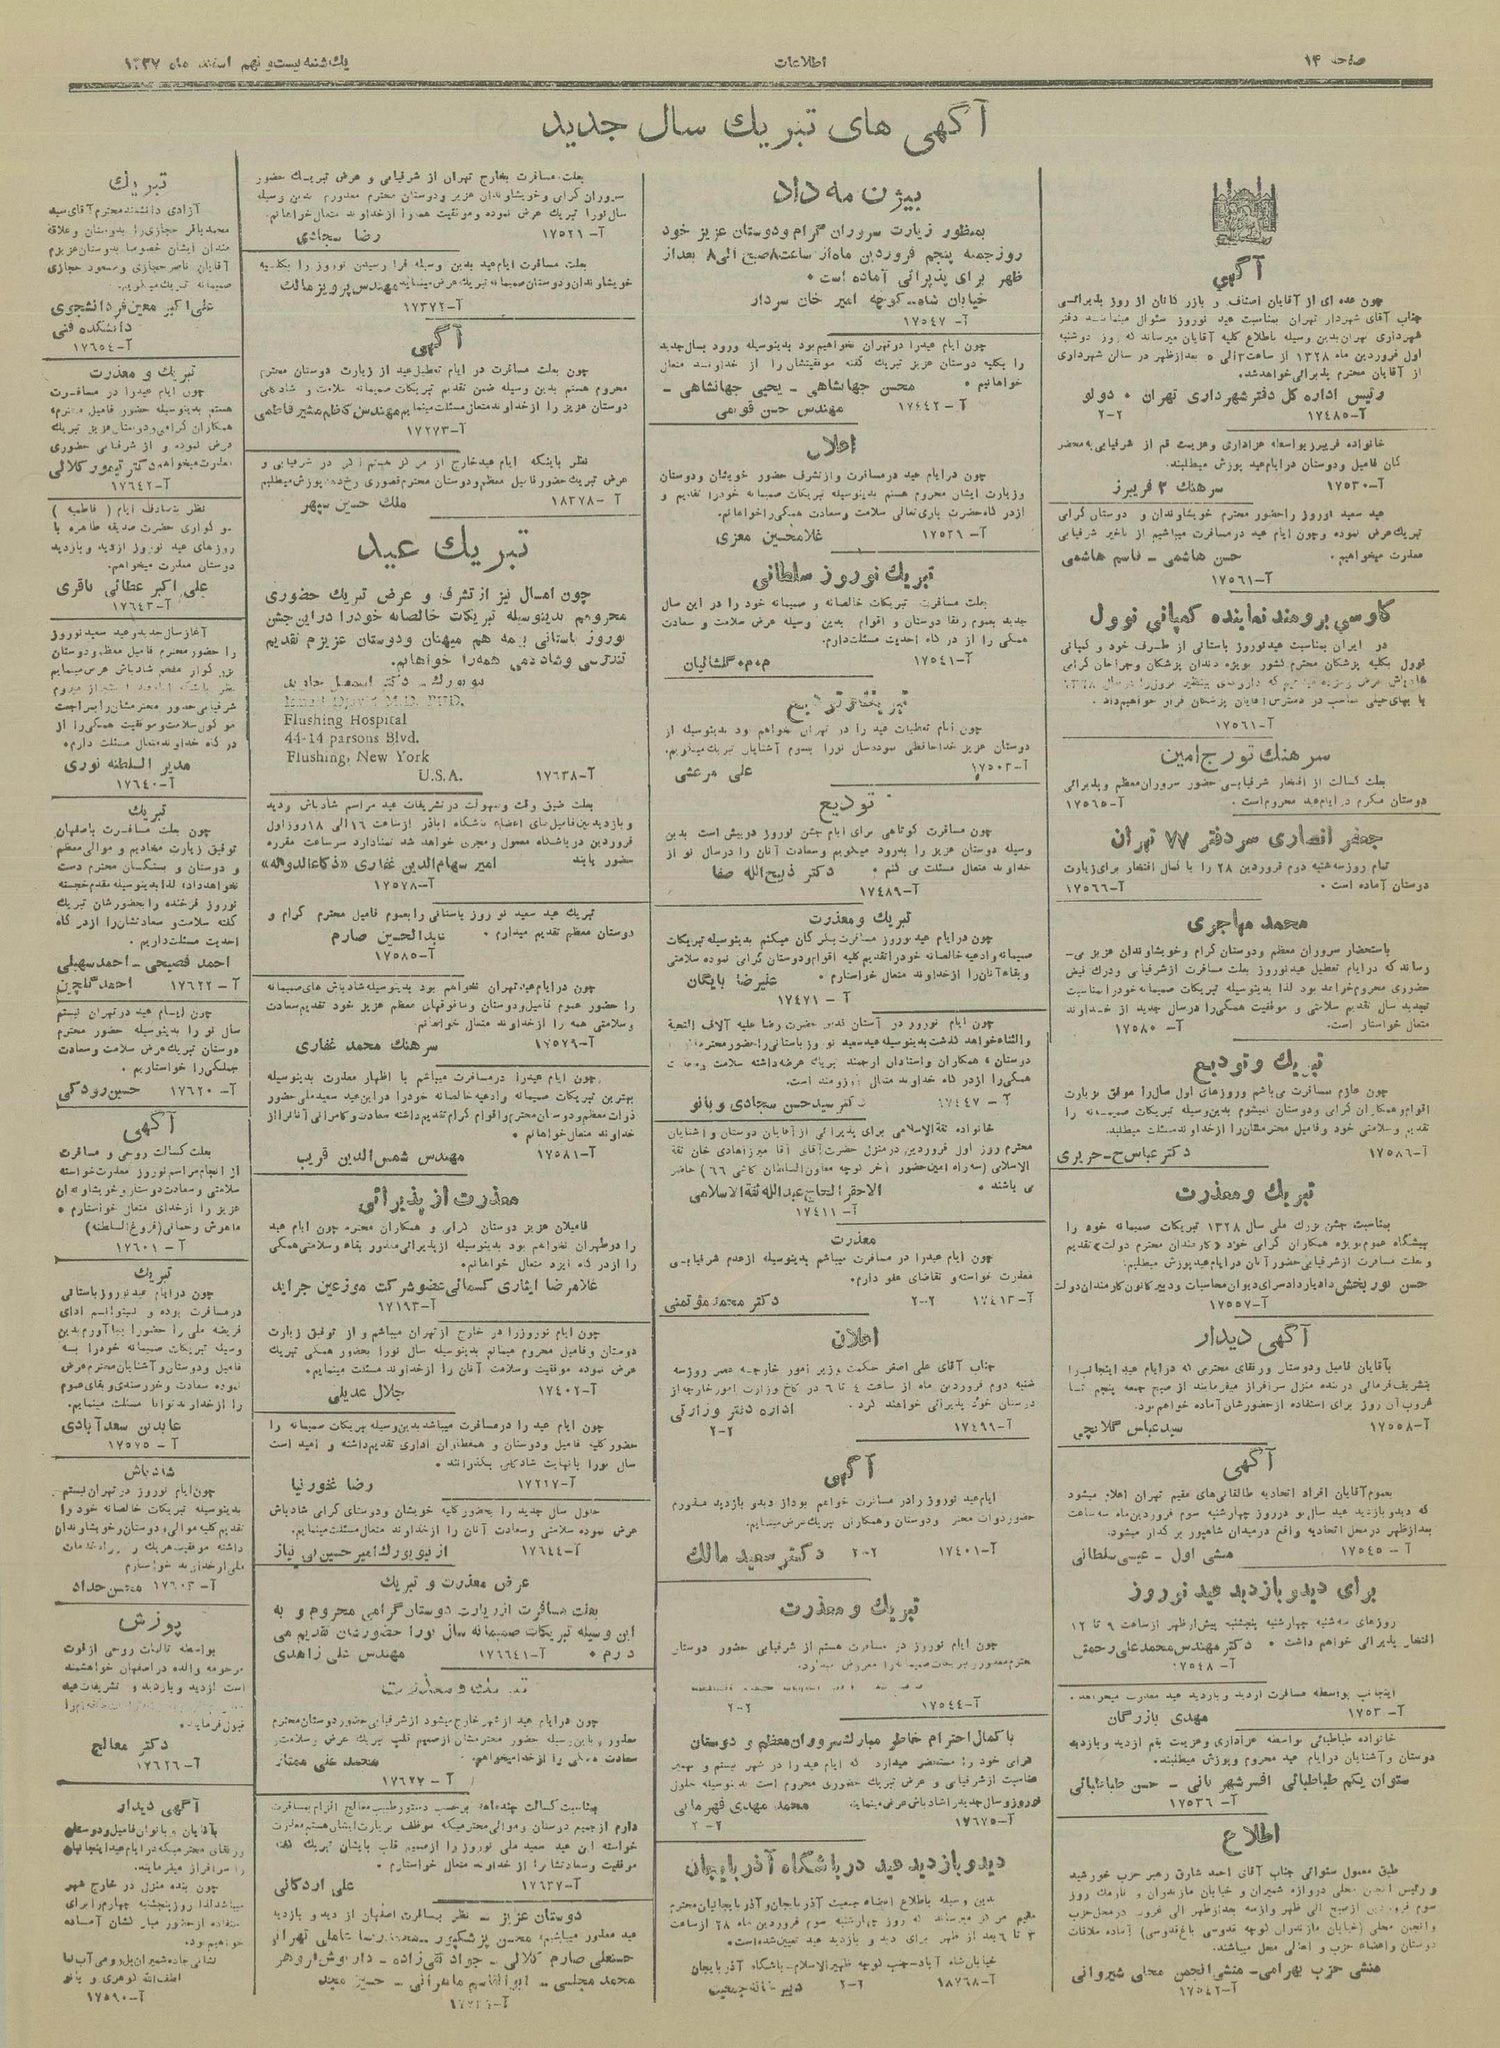 صفحه ۱۴
اطلاعات
یک شنبه بیست و نهم اسفند ماه ۱۳۲۷
آگهی های تبریک سال جدید
آگهی
چون عده ای از آقایان اصناف و بازرگانان از روز پذیرائی
جناب آقای شهردار تهران بمناسبت عید نوروز سئوال مینمایند دفتر
شهرداری تهران بدین وسیله باطلاع کلیه آقایان میرساند که روز دوشنبه
اول فروردین ماه ۱۳۲۸ از ساعت ۳ الی ۵ بعد از ظهر در سالن شهرداری
از آقایان محترم پذیرائی خواهد شد.
رئیس اداره کل دفتر شهرداری تهران ۰ دولو
آ-۱۷۴۸۵ ۲-۲
خانواده فریبرز بواسطه عزاداری وعزیمت قم از شرفیابی به محضر
کان فامیل ودوستان در ایام عید پوزش میطلبند.
آ-۱۷۵۳۰ سرهنگ ۲ فریبرز
عید سعید نوروز را حضور محترم خویشاوندان و دوستان گرامی
تبریک عرض نموده وچون ایام عید در مسافرت میباشیم از تاخیر شرفیابی
معذرت میخواهیم. حسن هاشمی - قاسم هاشمی
آ-۱۷۵۶۱
کاوسی برومند نماینده کمپانی نوول
در ایران بمناسبت عید نوروز باستانی از طرف خود و کمپانی
نوول بکلیه پزشکان محترم کشور بویژه دندان پزشکان وجراحان گرامی
با بهای خیلی مناسب در دسترس آقایان پزشکان قرار خواهیم داد.
آ-۱۷۵۶۱
سرهنگ تورج امین
بعلت کسالت از افتخار شرفیابی حضور سروران معظم و پذیرائی
دوستان مکرم در ایام عید محروم است. آ-۱۷۵۶۵
جعفر انصاری سردفتر ۷۷ تهران
تمام روز سه شنبه دوم فروردین ۲۸ را با کمال افتخار برای زیارت
دوستان آماده است. آ-۱۷۵۶۶
محمد مهاجری
باستحضار سروران معظم ودوستان گرام وخویشاوندان عزیز می-
رساند که در ایام تعطیل عید نوروز بعلت مسافرت از شرفیابی ودرک فیض
حضوری محروم خواهد بود لذا بدینوسیله تبریکات صمیمانه خود را بمناسبت
تجدید سال تقدیم سلامتی و موفقیت همگی را در سال جدید از خداوند
متعال خواستار است. آ- ۱۷۵۸۰
تبریک و تودیع
چون عازم مسافرت می باشم وروزهای اول سال را موفق بزیارت
اقوام و همکاران گرامی ودوستان نمیشوم بدین وسیله تبریکات صمیمانه را
تقدیم و سلامتی خود وفامیل محترمشان را از خداوند مسئلت میطلبد.
آ-۱۷۵۸۶ دکتر عباس ح-حریری
تبریک و معذرت
بمناسبت جشن بزرگ ملی سال ۱۳۲۸ تبریکات صمیمانه خود را
پیشگاه عموم بویژه همکاران گرامی خود «کارمندان محترم دولت» تقدیم
و بعلت مسافرت از شرفیابی حضور آنان در ایام عید پوزش میطلبم.
حسن نوربخش دادیار دادسرای دیوان محاسبات ودبیر کانون کارمندان دولت
آ-۱۷۵۵۷
آگهی دیدار
بآقایان فامیل ودوستان ورفقای محترمی که در ایام عید اینجانب را
بتشریف فرمائی در بنده منزل سرافراز میفرمایند از صبح جمعه پنجم تا
غروب آن روز برای استفاده از حضورشان آماده خواهم بود.
آ-۱۷۵۵۸ سید عباس گلابچی
آگهی
بعموم آقایان افراد اتحادیه طالقانی های مقیم تهران اعلام میشود
که دید و بازدید عید سال نو در روز چهارشنبه سوم فروردین ماه سه ساعت
بعد از ظهر در محل اتحادیه واقع در میدان شاهپور برگذار میشود.
آ- ۱۷۵۴۵ منشی اول - عیسی سلطانی
برای دید و بازدید عید نوروز
روزهای سه شنبه چهارشنبه پنجشنبه پیش از ظهر از ساعت ۹ تا ۱۲
افتخار پذیرائی خواهم داشت ۰ دکتر مهندس محمدعلی رحمتی
آ- ۱۷۵۴۸
اینجانب بواسطه مسافرت ازدید و بازدید عید معذرت میخواهد.
مهدی بازرگان
خانواده طباطبائی بواسطه عزاداری وعزیمت بقم ازدید وبازدید
دوستان و آشنایان در ایام عید محروم وپوزش میطلبند.
ستوان یکم طباطبائی افسر شهربانی - حسن طباطبائی
آ- ۱۷۵۳۶
اطلاع
طبق معمول سنواتی جناب آقای احمد شارق رهبر حزب خورشید
منشی حزب بهرامی - منشی انجمن محلی شیروانی
آ-۱۷۵۴۲
بیژن مه داد
بمنظور زیارت سروران گرام ودوستان عزیز خود
روز جمعه پنجم فروردین ماه از ساعت ۸ صبح الی ۸ بعد از
ظهر برای پذیرائی آماده است ۰
خیابان شاه - کوچه امیر خان سردار
آ- ۱۷۵۴۷
چون ایام عید را در تهران نخواهیم بود بدینوسیله ورود بسال جدید
را بکلیه دوستان عزیز تبریک گفته موفقیتشان را از خداوند متعال
خواهانیم ۰ محسن جهانشاهی - یحیی جهانشاهی -
آ- ۱۷۴۴۲ مهندس حسن قومی
اعلان
چون در ایام عید در مسافرت و از تشرف حضور خویشان ودوستان
وزیارت ایشان محروم هستم بدینوسیله تبریکات صمیمانه خود را تقدیم و
از درگاه حضرت باری تعالی سلامت وسعادت همگی را خواهانم.
آ- ۱۷۵۳۱ غلامحسین معزی
تبریک نوروز سلطانی
بعلت مسافرت تبریکات خالصانه و صمیمانه خود را در این سال
جدید بعموم رفقا دوستان و اقوام بدین وسیله عرض سلامت و سعادت
همگی را از درگاه احدیت مسئلت دارم.
آ-۱۷۵۴۱ م.م. گلشائیان
چون ایام تعطیلات عید را در تهران نخواهم بود بدینوسیله از
دوستان عزیز خداحافظی نموده سال نو را بعموم آشنایان تبریک میگویم.
آ-۱۷۵۰۳ علی مرعشی
تودیع
چون مسافرت کوتاهی برای ایام جشن نوروز در پیش است بدین
وسیله دوستان عزیز را بدرود میگویم وسعادت آنان را در سال نو از
خداوند متعال مسئلت می کنم دکتر ذبیح الله صفا
آ-۱۷۴۸۹
تبریک و معذرت
چون در ایام عید نوروز مسافرت بگرگان میکنم بدینوسیله تبریکات
صمیمانه وادعیه خالصانه خود را تقدیم کلیه اقوام ودوستان گرامی نموده سلامتی
و بقاء آنان را از خداوند متعال خواستارم ۰ علیرضا بایگان
آ - ۱۷۴۷۱
چون ایام نوروز در آستان قدس حضرت رضا علیه آلاف التحیة
والثناء خواهد گذشت بدینوسیله عید سعید نوروز باستانی را بحضور محترم
دوستان، همکاران واستادان ارجمند تبریک عرضه داشته سلامت وسعادت
همگی را از درگاه خداوند متعال آرزومند است.
آ - ۱۷۴۴۷ دکتر سید حسن سجادی و بانو
خانواده ثقة الاسلامی برای پذیرائی از آقایان دوستان و آشنایان
محترم روز اول فروردین در منزل حضرت آقای آقا میرزا هادی خان ثقة
الاسلامی (سه راه امین حضور آخر کوچه معاون السلطان کاشی ۶۶) حاضر
می باشند ۰ الاحقر الحاج عبدالله ثقة الاسلامی
آ-۱۷۴۱۱
معذرت
چون ایام عید را در مسافرت میباشیم بدینوسیله از عدم شرفیابی
معذرت خواسته و تقاضای عفو دارم.
آ-۱۷۴۱۳ ۲-۲ دکتر محمد مؤتمنی
اعلان
جناب آقای علی اصغر حکمت وزیر امور خارجه عصر روز سه
شنبه دوم فروردین ماه از ساعت ۴ تا ۶ در کاخ وزارت امور خارجه از
دوستان خود پذیرائی خواهند کرد. اداره دفتر وزارتی
آ-۱۷۴۶۹ ۲-۲
آگهی
ایام عید نوروز را در مسافرت خواهم بود از دید و بازدید معذورم
آ-۱۷۴۰۱ ۲-۲ دکتر سعید مالک
تبریک و معذرت
چون ایام نوروز در مسافرت هستم از شرفیابی حضور دوستان
آ-۱۷۵۴۴ ۲-۲
با کمال احترام خاطر مبارک سروران معظم و دوستان
گرامی خود را مستحضر میدارد که ایام عید را در شهر نیستم و بهمین
مناسبت از شرفیابی و عرض تبریک حضوری محروم است بدینوسیله حلول
نوروز و سال جدید را شادباش عرض مینماید محمد مهدی قهرمانی
آ-۱۷۶۷۵ ۲-۲
دید و بازدید عید در باشگاه آذربایجان
بدین وسیله باطلاع اعضاء جمعیت آذربایجان و آذربایجانیان محترم
مقیم مرکز میرساند که روز چهارشنبه سوم فروردین ماه ۲۸ از ساعت
۳ تا ۶ بعد از ظهر برای دید و بازدید عید تعیین شده است.
خیابان شاه آباد - جنب کوچه ظهیر الاسلام - باشگاه آذربایجان
آ-۱۸۷۶۸ ۲-۲ دبیرخانه جمعیت
بعلت مسافرت بخارج تهران از شرفیابی و عرض تبریک حضور
سروران گرامی وخویشاوندان عزیز ودوستان محترم معذورم بدین وسیله
سال نو را تبریک عرض نموده وموفقیت همه را از خداوند متعال خواهانم.
آ- ۱۷۵۲۱ رضا سجادی
بعلت مسافرت ایام عید بدین وسیله فرا رسیدن نوروز را بکلیه
خویشاوندان ودوستان صمیمانه تبریک عرض مینماید مهندس پرویز مالک
آ-۱۷۳۷۲
آگهی
چون بعلت مسافرت در ایام تعطیل عید از زیارت دوستان محترم
محروم هستم بدین وسیله ضمن تقدیم تبریکات صمیمانه سلامت و شادکامی
دوستان عزیز را از خداوند متعال مسئلت مینمایم مهندس کاظم مشیر فاطمی
آ-۱۷۲۷۳
نظر باینکه ایام عید خارج از مرکز هستم اگر در شرفیابی و
عرض تبریک حضور فامیل معظم و دوستان محترم قصوری رخ دهد پوزش میطلبم
آ - ۱۸۳۷۸ ملک حسین سپهر
تبریک عید
چون امسال نیز از تشرف و عرض تبریک حضوری
محرومم بدینوسیله تبریکات خالصانه خود را در این جشن
نوروز باستانی بهمه هم میهنان ودوستان عزیزم تقدیم
تندرستی وشادکامی همه را خواهانم.
Flushing Hospital
44-14 parsons Blvd.
Flushing, New York
U.S.A. آ-۱۷۶۳۸
بعلت ضیق وقت و سهولت در تشریفات عید مراسم شادباش ودید
و بازدید بین فامیل های اعضاء باشگاه اباذر از ساعت ۱۶ الی ۱۸ روز اول
فروردین در باشگاه معمول و مجری خواهد شد تمنا دارد سر ساعت مقرره
حضور یابند امیر سهام الدین غفاری «ذکاء الدوله»
آ-۱۷۵۷۸
تبریک عید سعید نوروز باستانی را بعموم فامیل محترم گرام و
دوستان معظم تقدیم میدارم ۰ عبدالحسین صارم
آ-۱۷۵۸۵
چون در ایام عید تهران نخواهم بود بدینوسیله شادباش های صمیمانه
را حضور عموم فامیل ودوستان و مافوقهای معظم عزیز خود تقدیم سعادت
وسلامتی همه را از خداوند متعال خواهانم.
آ-۱۷۵۷۹ سرهنگ محمد غفاری
چون ایام عید را در مسافرت میباشم با اظهار معذرت بدینوسیله
بهترین تبریکات صمیمانه وادعیه خالصانه خود را در این عید سعید ملی حضور
ذوات معظم و دوستان محترم واقوام گرام تقدیم داشته سعادت و کامرانی آنان را از
خداوند متعال خواهانم ۰
آ-۱۷۵۸۱ مهندس شمس الدین قریب
معذرت از پذیرائی
فامیلان عزیز دوستان گرامی و همکاران محترم چون ایام عید
را در طهران نخواهم بود بدینوسیله از پذیرائی معذور بقاء وسلامتی همگی
را از درگاه ایزد متعال خواهانم.
غلامرضا ایثاری کسمائی عضو شرکت موزعین جراید
آ-۱۷۱۹۳
چون ایام نوروز را در خارج از تهران میباشم و از توفیق زیارت
دوستان وفامیل محروم میمانم بدینوسیله سال نو را بحضور همگی تبریک
عرض نموده موفقیت وسلامت آنان را از خداوند مسئلت مینمایم.
آ-۱۷۴۰۲ جلال عدیلی
چون ایام عید را در مسافرت میباشد بدین وسیله تبریکات صمیمانه را
حضور کلیه فامیل ودوستان و همقطاران اداری تقدیم داشته و امید است
سال نو را با نهایت شادکامی بگذرانند ۰
آ-۱۷۲۲۷ رضا غفورنیا
حلول سال جدید را بحضور کلیه خویشان ودوستان گرامی شادباش
عرض نموده سلامتی وسعادت آنان را از خداوند متعال مسئلت مینمایم.
آ-۱۷۶۴۴ از نیویورک امیر حسین بی نیاز
عرض معذرت و تبریک
بعلت مسافرت از زیارت دوستان گرامی محروم و به
این وسیله تبریکات صمیمانه سال نو را حضورشان تقدیم می
دارم ۰ آ-۱۷۶۶۴۱ مهندس علی زاهدی
چون در ایام عید از شهر خارج میشود از شرفیابی حضور دوستان محترم
معذور و باین وسیله حضور محترمشان از صمیم قلب تبریک عرض و سلامت و
سعادت همگی را از خدا میخواهم. محمد علی ممتاز
آ - ۱۷۶۲۷
بمناسبت کسالت چند ماهه برحسب دستور طبیب معالج الزام بمسافرت
دارم از جمیع دوستان و موالی محترمیکه موظف بزیارت ایشان هستم معذرت
خواسته این عید سعید ملی نوروز را از صمیم قلب بایشان تبریک گفته
موفقیت وسعادتشان را از خداوند متعال خواستارم ۰
آ-۱۷۶۳۷ علی اردکانی
دوستان عزیز - نظر بمسافرت اصفهان از دید و بازدید
عید معذور میباشیم. محسن پزشکپور
حسنعلی صارم کلالی - جواد تقی زاده - داریوش فروهر
محمد مجلسی - ابوالقاسم ماهرانی
تبریک
آزادی دانشمند محترم آقای سید
محمدباقر حجازی را بدوستان وعلاقه
مندان ایشان خصوصا بدوستان عزیزم
آقایان ناصر حجازی و مسعود حجازی
صمیمانه تبریک میگویم.
علی اکبر معین فر دانشجوی
دانشکده فنی
آ-۱۷۶۵۴
تبریک و معذرت
چون ایام عید را در مسافرت
هستم بدینوسیله حضور فامیل محترم،
همکاران گرامی و دوستان عزیز تبریک
عرض نموده و از شرفیابی حضوری
معذرت میخواهم دکتر تیمور کلالی
آ-۱۷۶۴۲
نظر بتصادف ایام ( فاطمیه )
سوگواری حضرت صدیقه طاهره با
روزهای عید نوروز ازدید و بازدید
دوستان معذرت میخواهم.
علی اکبر عطائی باقری
آ-۱۷۶۴۳
آغاز سال جدید و عید سعید نوروز
را حضور محترم فامیل معظم و دوستان
بزرگوار مفخم شادباش عرض مینمایم
موکول سلامت و موفقیت همگی را از
درگاه خداوند متعال مسئلت دارم ۰
مدیر السلطنه نوری
آ-۱۷۶۴۰
تبریک
چون بعلت مسافرت باصفهان
توفیق زیارت مخادیم و موالی معظم
و دوستان و بستگان محترم دست
نخواهد داد، لذا بدینوسیله مقدم خجسته
نوروز فرخنده را بحضورشان تبریک
گفته سلامت وسعادتشان را از درگاه
احدیت مسئلت داریم ۰
احمد فصیحی - احمد سهیلی
آ - ۱۷۶۲۲ احمد گلچین
چون ایام عید در تهران نیستم
سال نو را بدینوسیله حضور محترم
دوستان تبریک عرض سلامت وسعادت
جملگی را خواستاریم ۰
آ- ۱۷۶۲۰ حسین رودکی
آگهی
بعلت کسالت روحی و مسافرت
از انجام مراسم نوروز معذرت خواسته
سلامتی وسعادت دوستان و خویشاوندان
عزیز را از خدای متعال خواستارم ۰
ماهوش رحمانی (فروغ السلطنه)
آ - ۱۷۶۰۱
تبریک
چون در ایام عید نوروز باستانی
در مسافرت بوده و نمیتوانم ادای
فریضه ملی را حضورا بجا آورم بدین
وسیله تبریکات صمیمانه خود را به
فامیل ودوستان و آشنایان محترم عرض
نموده سعادت وخرسندی و بقای عموم
را از خداوند توانا مسئلت مینمایم.
عابدین سعدآبادی
آ - ۱۷۵۷۵
شادباش
چون ایام نوروز در تهران نیستم
بدینوسیله تبریکات خالصانه خود را
تقدیم کلیه موالی و دوستان وخویشاوندان
آ-۱۷۶۰۳ محسن حداد
پوزش
بواسطه تالمات روحی از فوت
مرحومه والده در اصفهان خواهشمند
است ازدید و بازدید و تشریفات عید
دکتر معالج
آ-۱۷۶۲۶
آگهی دیدار
بآقایان و بانوان فامیل ودوستان
ورفقای محترمیکه در ایام عید اینجانبان
را سرافراز میفرمایند.
چون بنده منزل در خارج شهر
میباشد لذا روز پنجشنبه چهارم را برای
استفاده از حضور مبارکشان آماده
خواهیم بود.
لطف الله گوهری و بانو
آ-۱۷۵۹۰